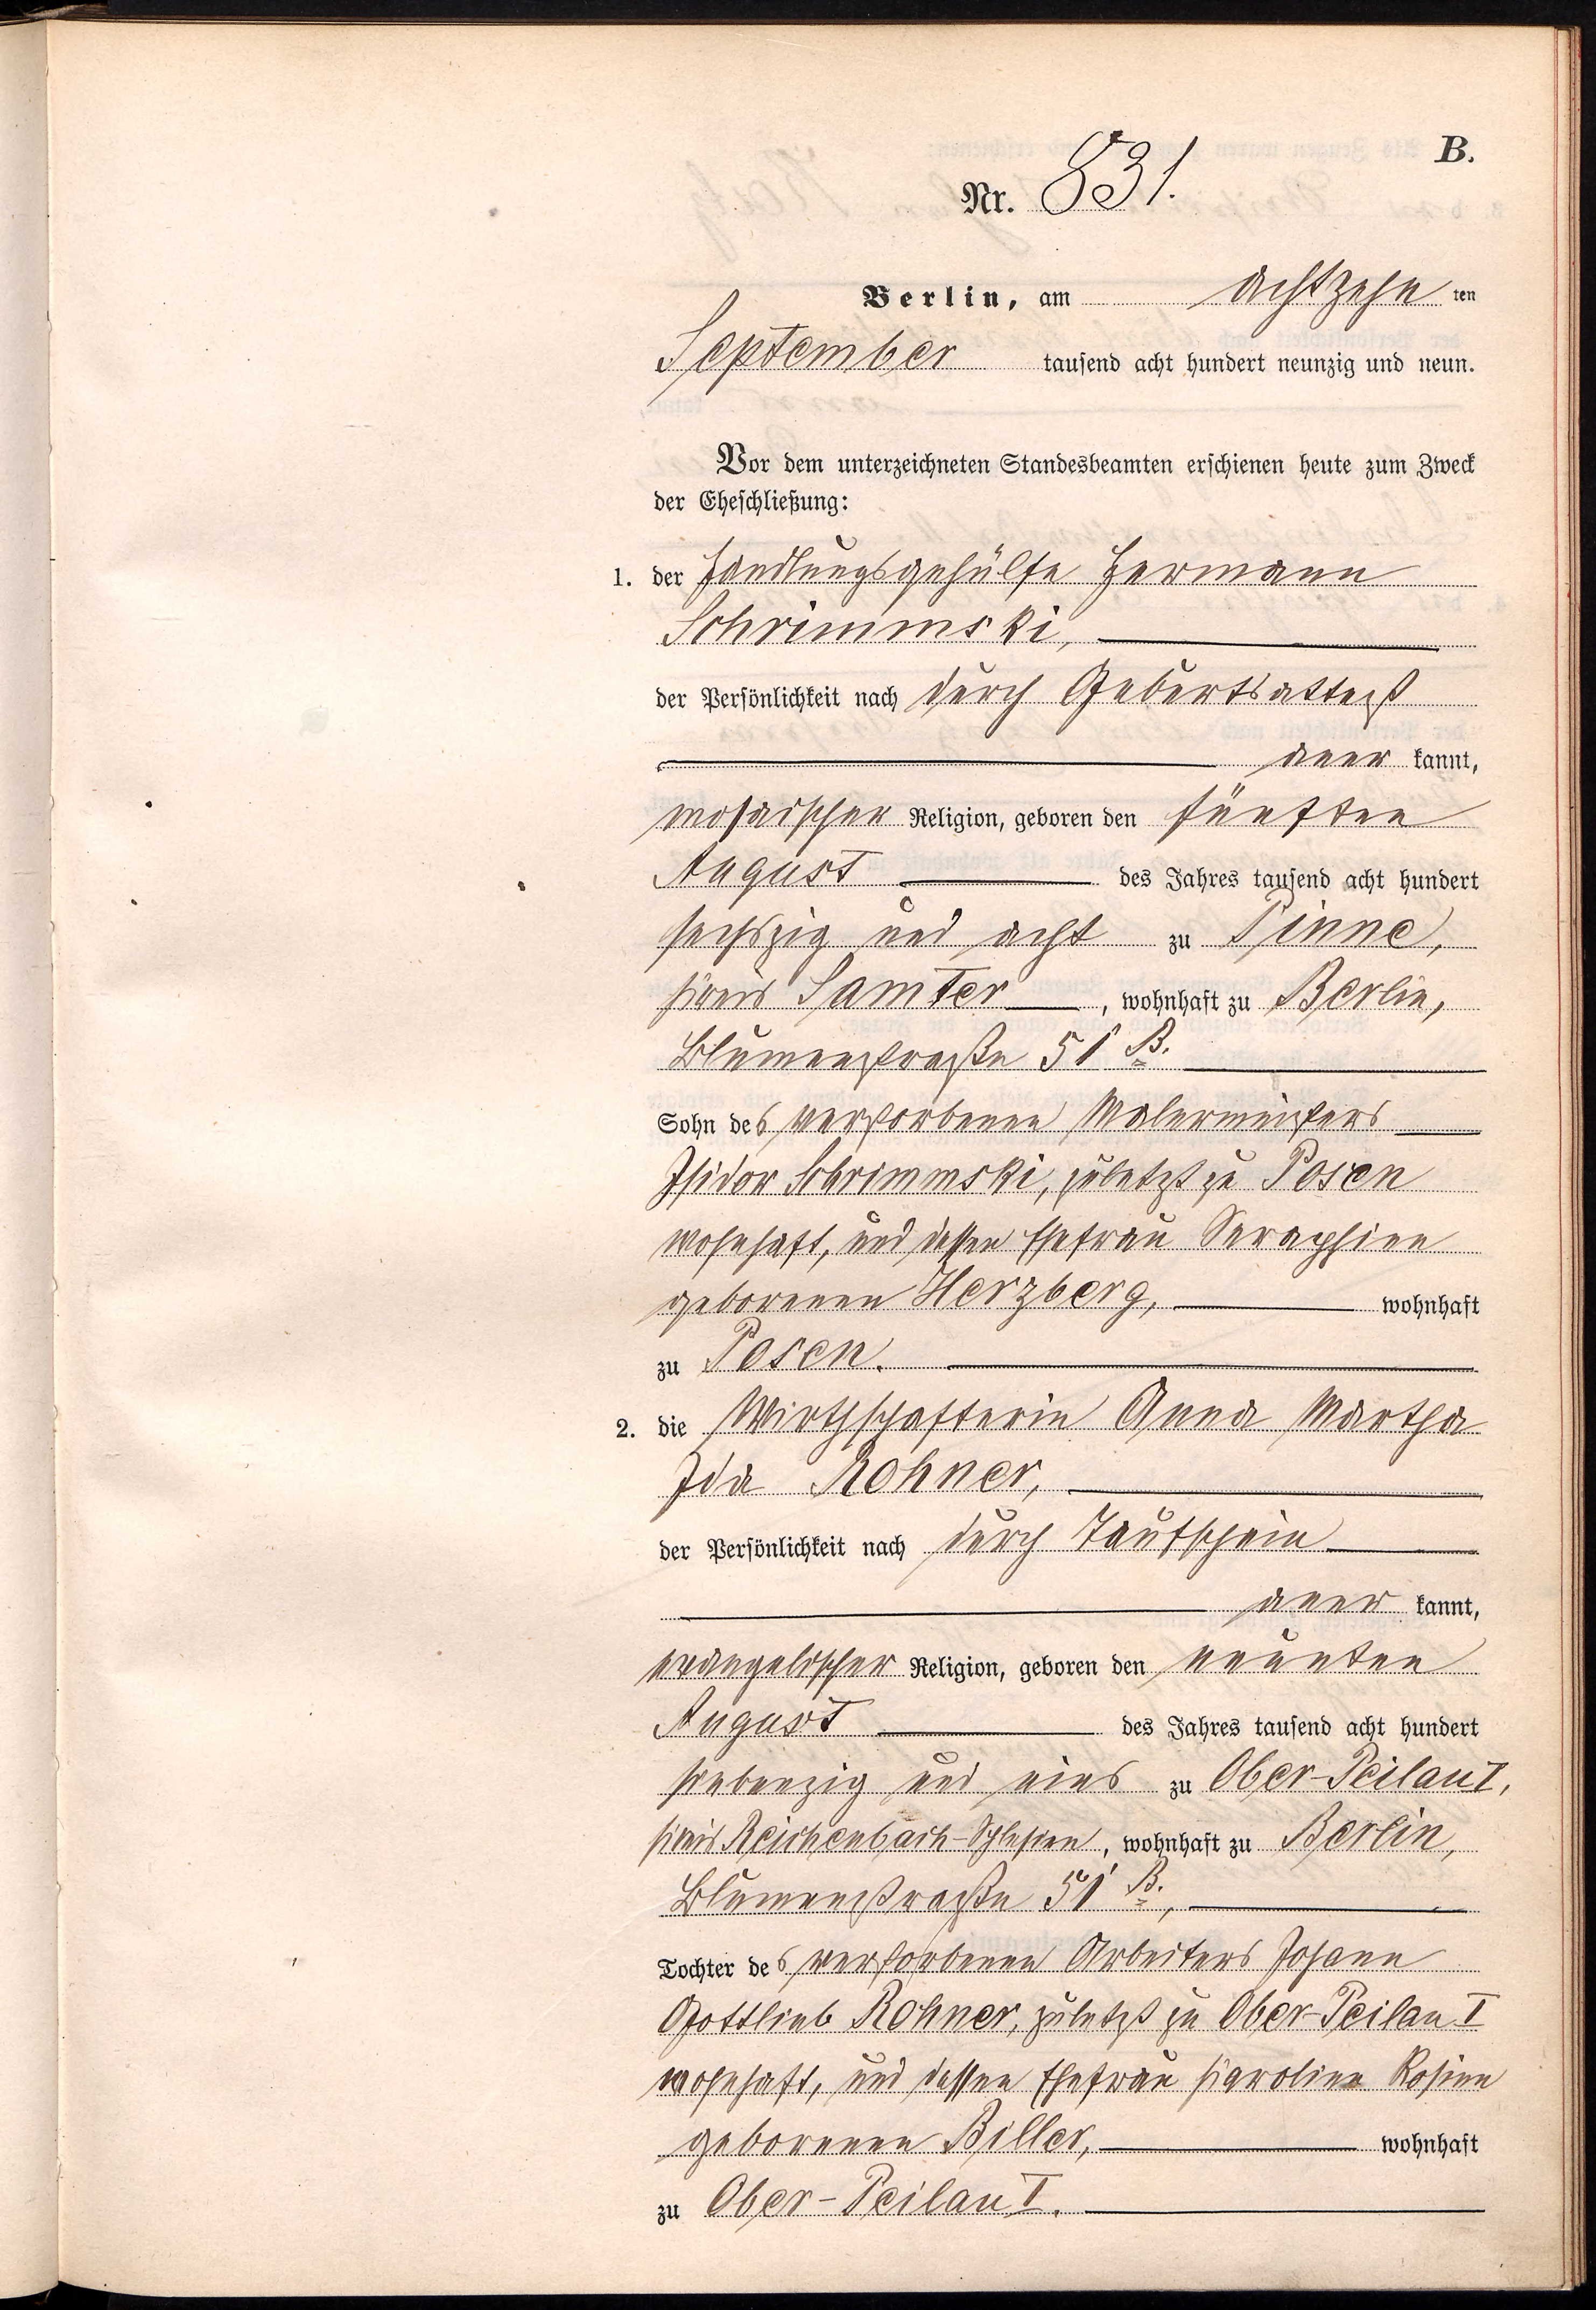 B.
Nr. 831.
Berlin, am achtzehn ten
September tausend acht hundert neunzig und neun.
Vor dem unterzeichneten Standesbeamten erschienen heute zum Zweck
der Eheschließung:
1. der Handlungsgehülfe Hermann
Schrimmski,
der Persönlichkeit nach durch Geburtsattest
aner kannt,
mosaischer Religion, geboren den fünften
August des Jahres tausend acht hundert
sechszig und acht zu Pinne,
Kreis Samter, wohnhaft zu Berlin,
Blumenstraße 51 B.
Sohn des verstorbenen Malermeisters
Isidor Schrimmski, zuletzt zu Posen
wohnhaft, und dessen Ehefrau Seraphine
geborenen Herzberg, wohnhaft
zu Posen.
2. die Wirthschafterin Anna Martha
Ida Rohner,
der Persönlichkeit nach durch Taufschein
aner kannt,
evangelischer Religion, geboren den neunten
August des Jahres tausend acht hundert
siebenzig und eins zu Ober-Peilau I,
Kreis Reichenbach-Schlesien, wohnhaft zu Berlin,
Blumenstraße 51 B.,
Tochter des verstorbenen Arbeiters Johann
Gottlieb Rohner, zuletzt zu Ober-Peilau I
wohnhaft, und dessen Ehefrau Karoline Rosine
geborenen Biller, wohnhaft
zu Ober-Peilau I.